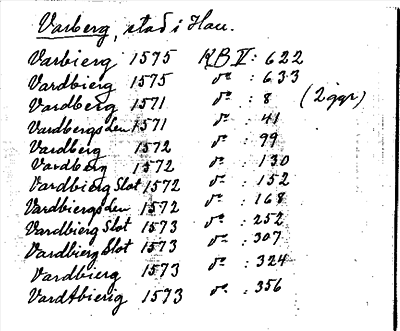 Varberg, stad i Hall.
Varbierg 1575 KB V: 622
Vardbierg 1575 do : 633
Vardberg 1571 do : 8 (2 ggr)
Vardbergs Len 1571 do : 41
Vardberg 1572 do : 99
Vardberg 1572 do : 130
Vardbierg Slot 1572 do : 152
Vardbiergs Len 1572 do : 168
Vardbierg Slot 1573 do : 252
Vardbierg Slot 1573 do : 307
Vardbierg 1573 do : 324
Vardtbierig 1573 do : 356